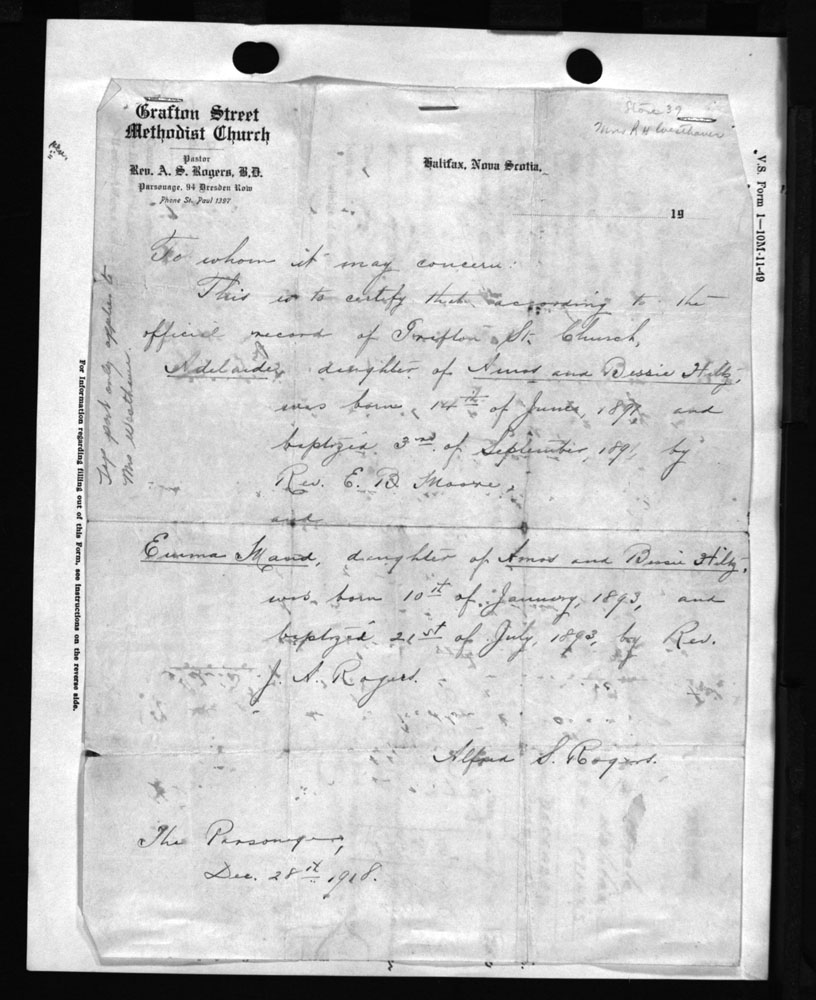 Grafton Street
Methodist Church
Pastor
Rev. A. S. Rogers, B.D.
Parsonage, 94 Dresden Row
Phone St. Paul 1397
Store 39
Mrs R H Westhaver
Halifax, Nova Scotia,
19
To whom it may concern:
This is to certify that according to the
official record of Grafton St. Church,
Adelaide, daughter of Amos and Bessie Hiltz,
was born 14th of June, 1891, and
baptized 3rd of September, 1891, by
Rev. E. B. Moore,
and
Emma Maud, daughter of Amos and Bessie Hiltz,
was born 10th of January, 1893, and
baptized 21st of July, 1893, by Rev.
J. A. Rogers.
Alfred S. Rogers.
The Parsonage,
Dec. 28th 1918.
Top part only applies to
Mrs Westhaver
For information regarding filling out of this Form, see instructions on the reverse side.
V.S. Form 1—10M-11-49